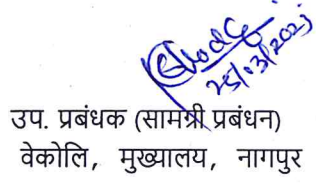 25/03/2023
उप. प्रबंधक (सामग्री प्रबंधन)
वेकोलि, मुख्यालय, नागपुर